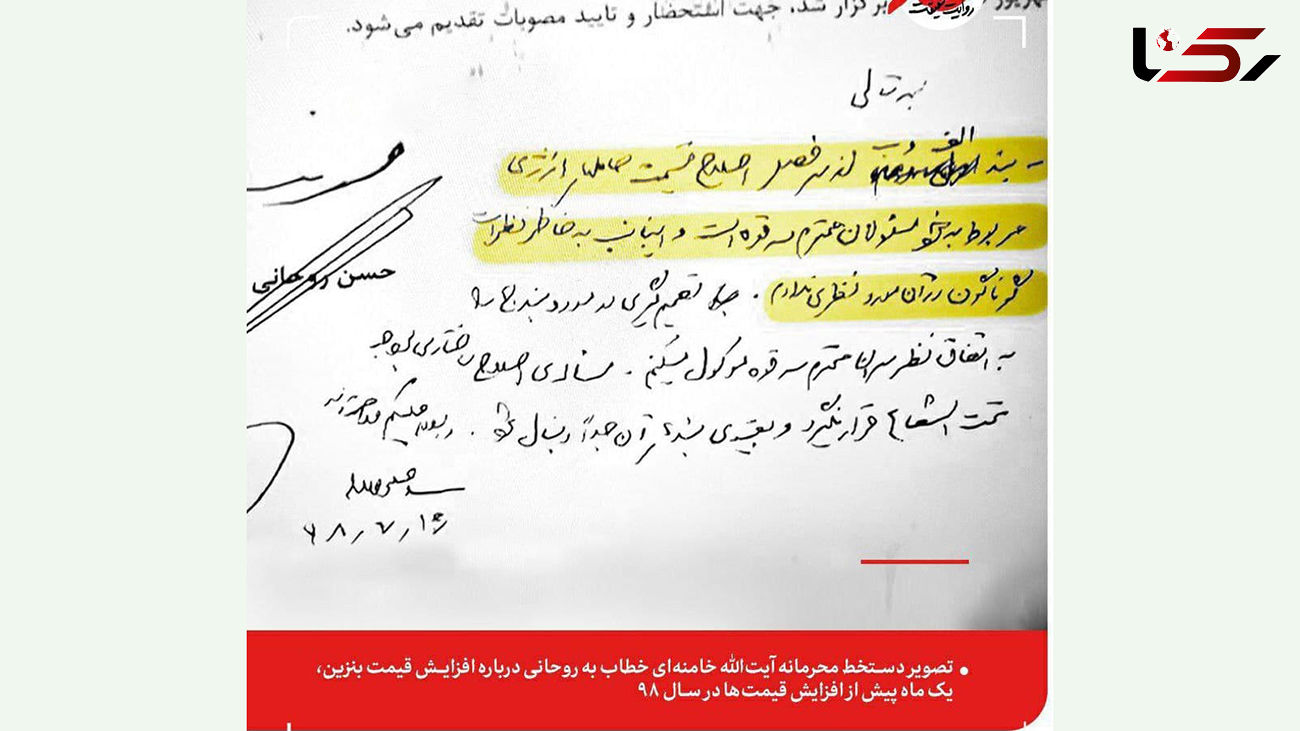 رکنا
روایت
برگزار شد، جهت استحضار و تایید مصوبات تقدیم می‌شود.
بسمه تعالی
- بند الف و ب از سرفصل اصلاح قیمت حاملهای انرژی
مربوط به خود مسئولان محترم سه قوه است و اینجانب به خاطر نظرات
گوناگون در آن مورد نظری ندارم. تصمیم‌گیری در مورد بند ج را
به اتفاق نظر سران محترم سه قوه موکول میکنم. اصلاح ساختاری بودجه
تحت الشعاع قرار نگیرد و بقیه‌ی آن جداً دنبال شود. والسلام علیکم و رحمة‌الله
حسن روحانی
۹۸/۷/۱۶
• تصویر دستخط محرمانه آیت‌الله خامنه‌ای خطاب به روحانی درباره افزایش قیمت بنزین،
یک ماه پیش از افزایش قیمت‌ها در سال ۹۸